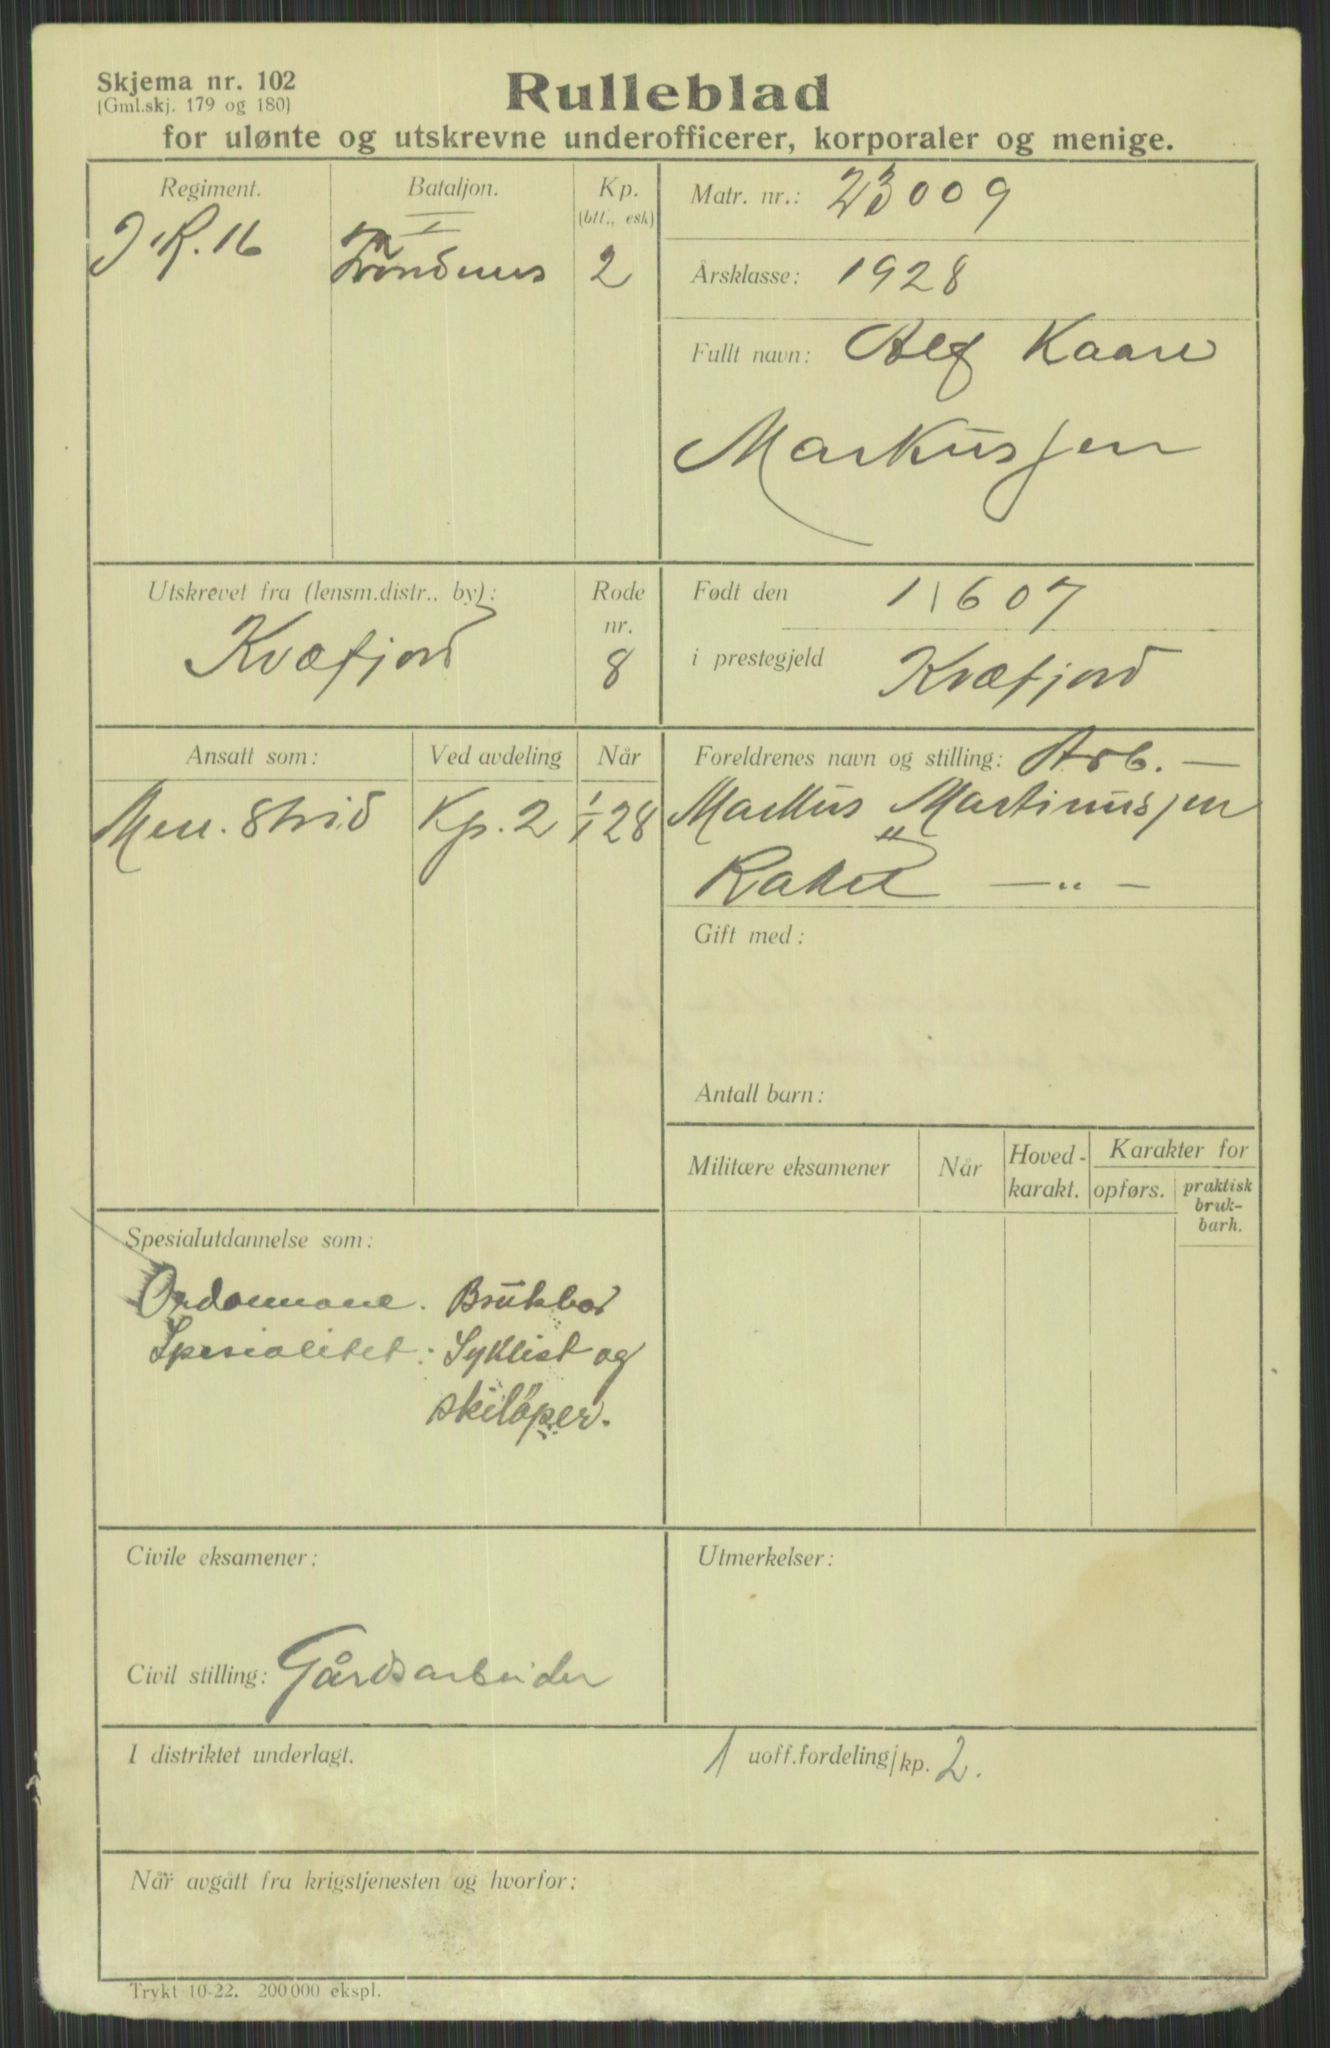 Skjema nr. 102
(Gml.skj. 179 og 180)
Rulleblad
for ulønte og utskrevne underofficerer, korporaler og menige.
Regiment.
I.R. 16
Bataljon.
II
Trondenes
Kp.
(btt., esk)
2
Matr. nr.: 23009
Årsklasse: 1928
Fullt navn: Alf Kaare
Markussen
Utskrevet fra (lensm.distr., by):
Kvæfjord
Rode
nr.
8
Født den 1/1 6 07
i prestegjeld Kvæfjord
Ansatt som:
Men. Strid
Ved avdeling
Kp. 2
Når
1/1 28
Foreldrenes navn og stilling: Arb. —
Markus Martinussen
Rakel — " —
Gift med:
Antall barn:
Militære eksamener
Når
Hoved-
karakt.
Karakter for
opførs.
praktisk
bruk-
barh.
Spesialutdannelse som:
Ordonnans. Brukbar
Spesialitet: Syklist og
skiløper.
Civile eksamener:
Civil stilling: Gårdsarbeider
Utmerkelser:
I distriktet underlagt.
1 uoff.fordeling/kp. 2.
Når avgått fra krigstjenesten og hvorfor:
Trykt 10-22. 200 000 ekspl.